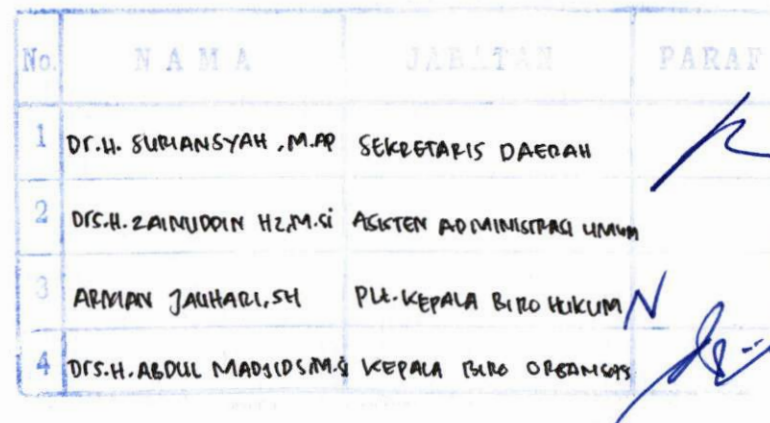 No. NAMA JABATAN PARAF
1 Dr.H. SURIANSYAH, M.AP SEKRETARIS DAERAH
2 Drs.H. ZAINUDDIN HZ,M.Si ASISTEN ADMINISTRASI UMUM
3 ARMAN JAUHARI, SH Plt. KEPALA BIRO HUKUM
4 Drs.H. ABDUL MADJID S,M.Si KEPALA BIRO ORGANISASI